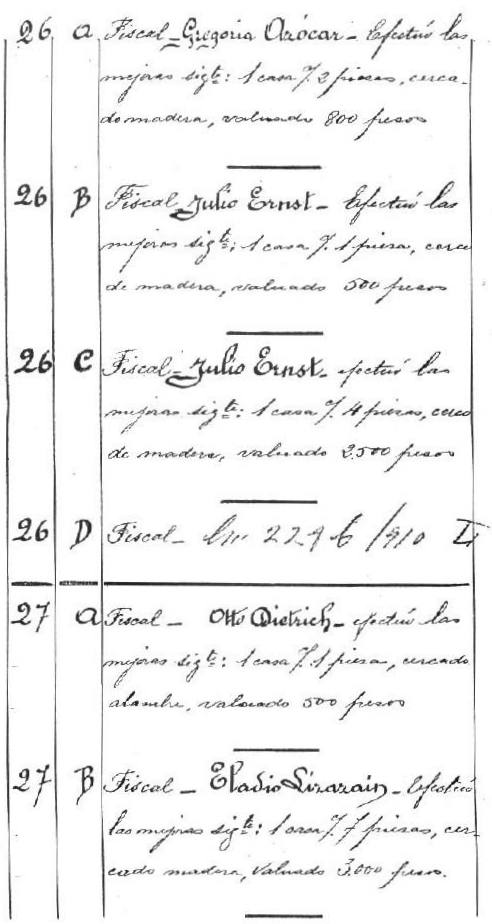 26 a Fiscal - Gregoria Azócar - Efectuó las
mejoras sigte: 1 casa 7. 2 piezas, cerca-
do madera, valuado 800 pesos
26 B Fiscal Julio Ernst - Efectuó las
mejoras sigte: 1 casa 7. 1 pieza, cerco
de madera, valuado 500 pesos
26 C Fiscal - Julio Ernst - efectuó las
mejoras sigte: 1 casa 7. 4 piezas, cerco
de madera, valuado 2.500 pesos
26 D Fiscal - /910
27 a Fiscal - Otto Dietrich - efectuó las
mejoras sigte: 1 casa 7. 1 pieza, cercado
alambre, valuado 500 pesos
27 B Fiscal - Eladio - Efectuó
las mejoras sigte: 1 casa 7. 7 piezas, cer-
cado madera, valuado 3.000 pesos.